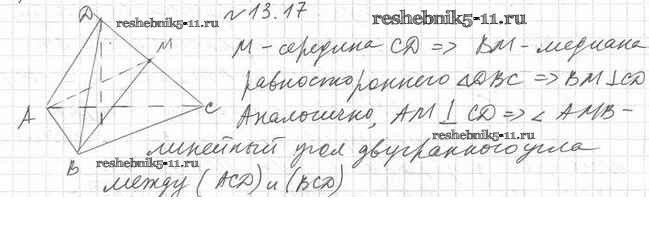 №13.17
reshebnik5-11.ru
reshebnik5-11.ru
D
M
A
C
B
M - середина CD => BM - медиана
равностороннего △DBC => BM⊥CD
Аналогично, AM ⊥ CD => ∠ AMB -
reshebnik5-11.ru
линейный угол двугранного угла
reshebnik5-11.ru
между (ACD) и (BCD)